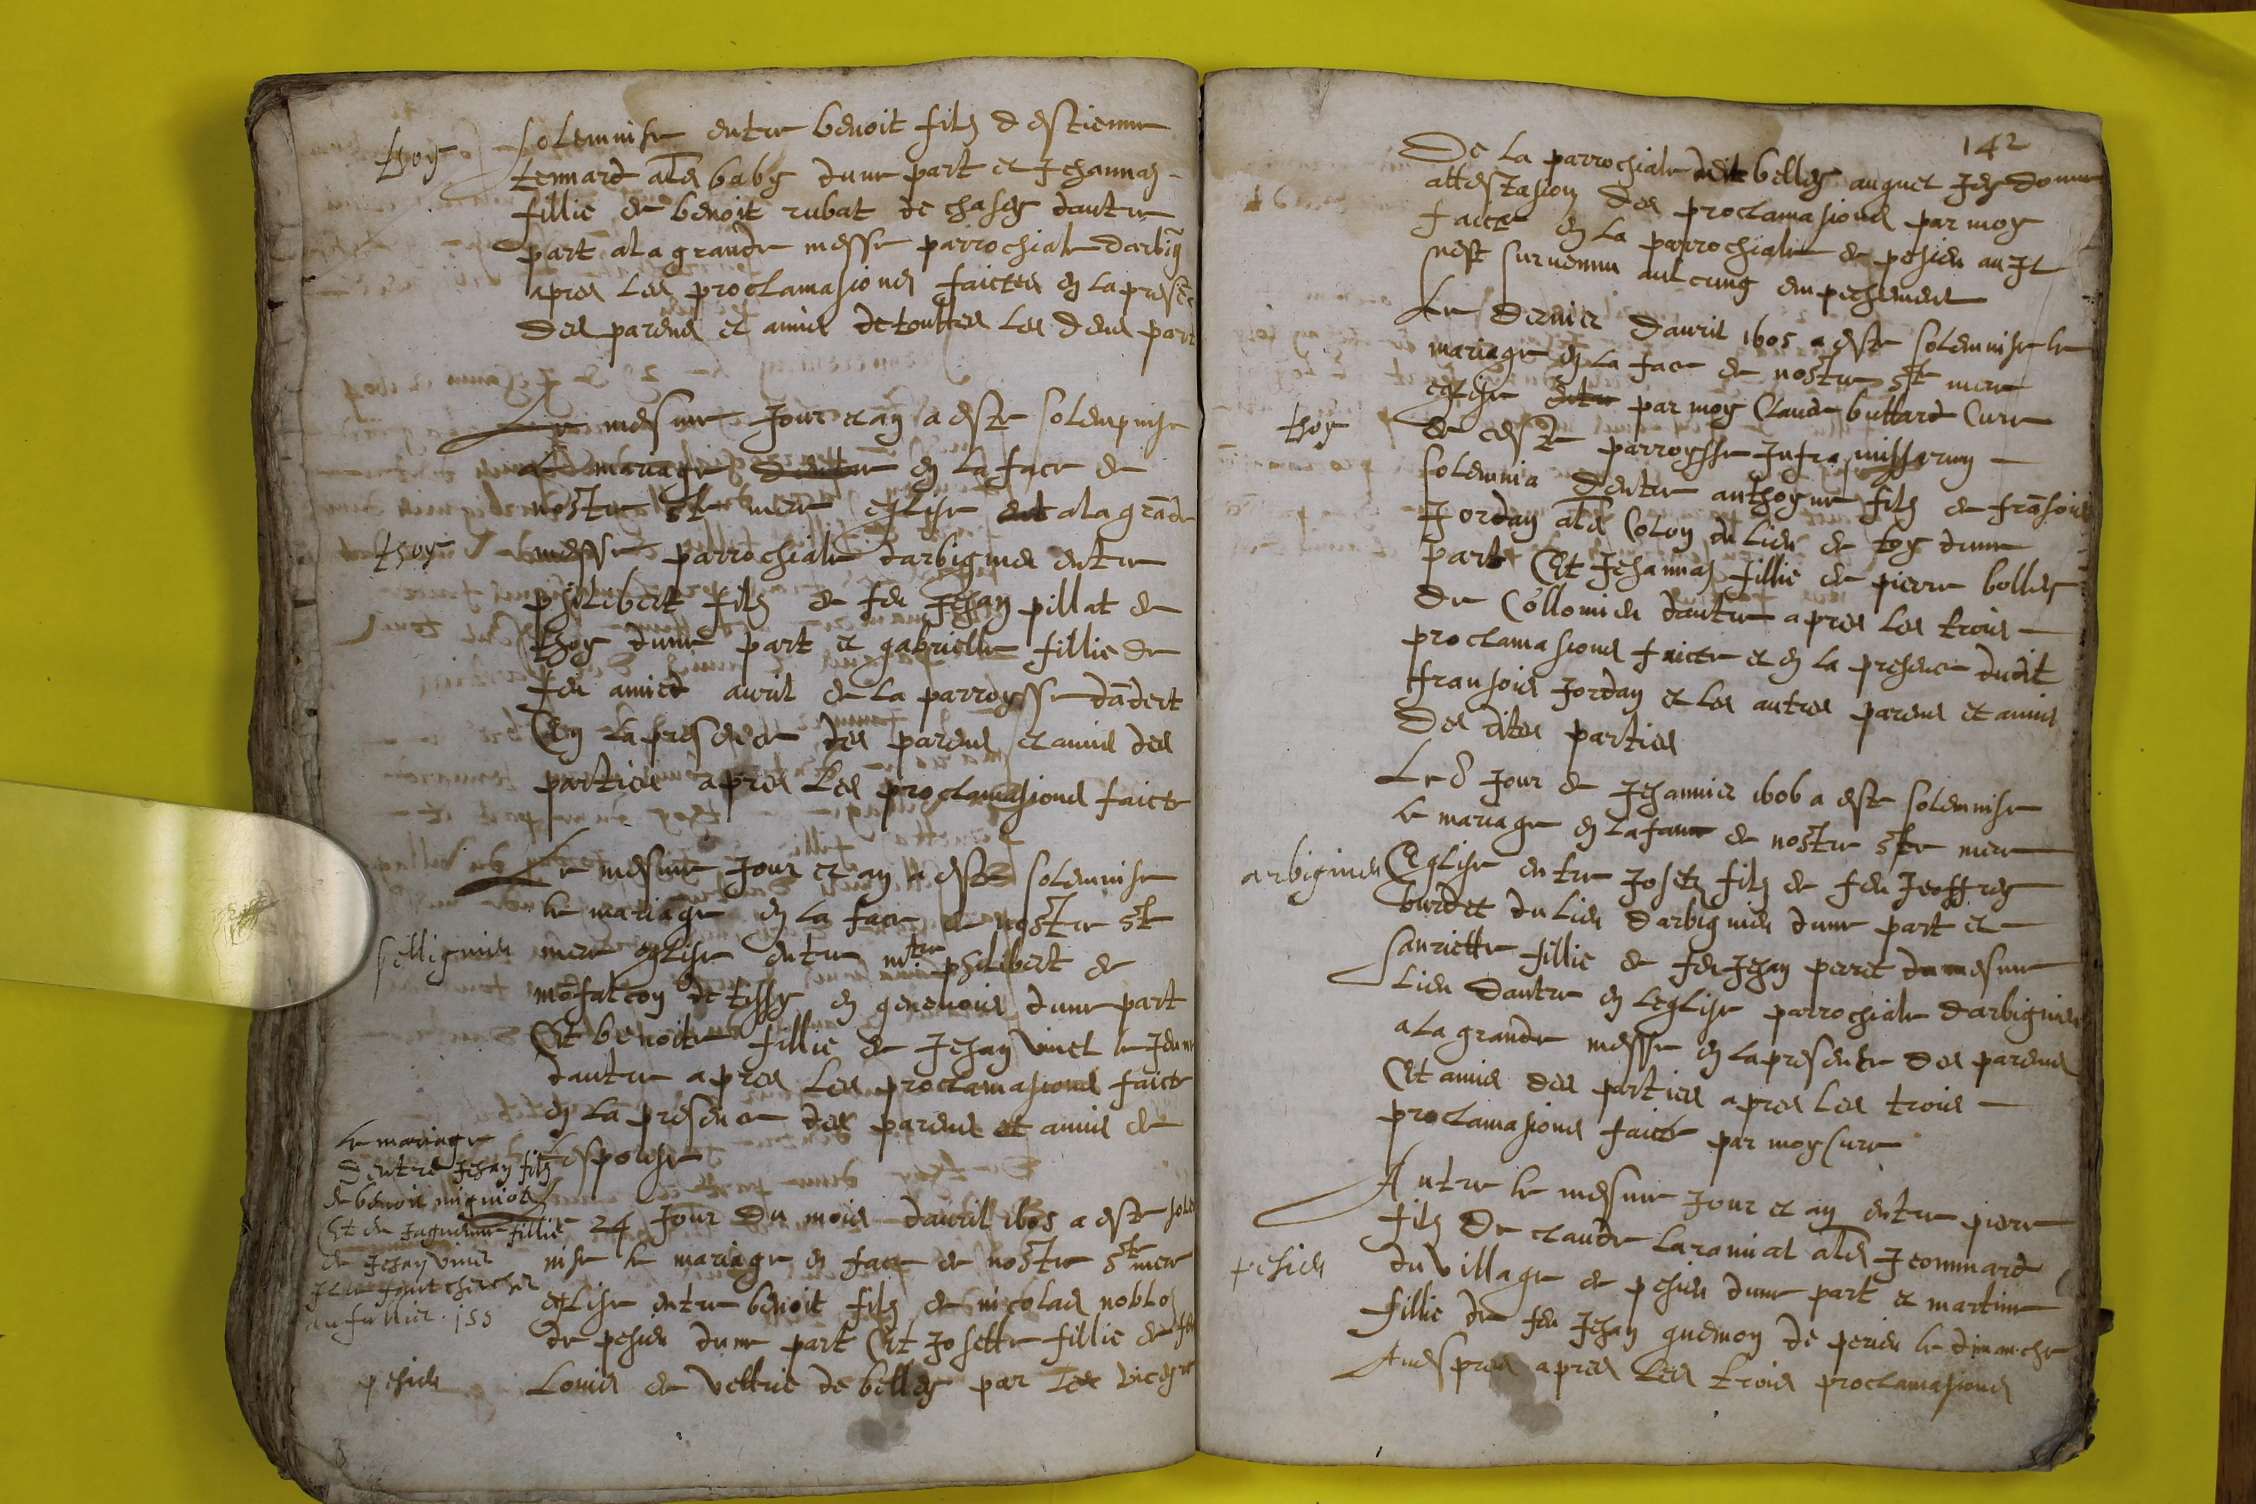 thoy
solemnise entre benoit filz d estienne
tennard als baby dune part et Jehannaz
fillie de benoit rubat de chasey dautre
part a la grande messe parrochiale darbig
apres les proclamasions faictes en la presce
des parens et amis de touttes les deus part
Le mesme Jour et an a este solempnise
le mariage en la face de
nostre ste mere eglise a la grade
thoy
messe parrochiale darbignieu entre
philibert filz de feu Jehan pillat de
thoy dune part et gabrielle fillie de
feu amied avril de la parroysse dadert
En la presence des parens et amis des
parties apres les proclamasions faicte
Le mesme Jour et an a este solemnise
le mariage en la face de nostre ste
sellignieu
mere eglise entre mtre philibert de
mofalcon de tissy en genevois dune part
Et benoite fillie de Jehan vinct le Jeune
dautre apres les proclamasions faicte
en la presence des parens et amis de
lespouse
le mariage
dentre Jehan filz
de benoit migniot
Et de Jaquemme fillie
de Jehan vinct
Il le faut chercher
au fullict . 155
24 Jour du mois davril 1605 a este sole
nise le mariage en face de nostre ste mere
eglise entre benoit filz de nicolas noblo
de pesieu dune part Et Josette fillie de feu
pesieu
Louis de vettrie de belley par les vicayre
142
De la parrochiale de belley auquel Jey donne
attestasion des proclamasions par moy
faicte en la parrochiale de pesieu au Il
nest survenuu aulcung empechement
Le dernier davril 1605 a este solemnise le
mariage en la face de nostre ste mere
eglise par moy Claude buttard Cure
thoy
de ceste parroysse Infra missarum
solemnia dentre anthoyne filz de fransois
Jordan als Colon du lieu de toy dune
part Et Jehannaz fillie de pierre bolley
de Collomieu dautre apres les trois
proclamasions faicte et en la presence dudit
ffransois Jordan et les autres parens et amis
des dites parties
Le 8 Jour de Jehanvier 1606 a este solemnise
le mariage en la face de nostre ste mere
arbignieu
Eglise entre Joseth filz de feu Jeoffrey
burdet du lieu darbignieu dune part et
sauriette fillie de feu Jehan perret du mesme
lieu dautre en leglise parrochiale darbignieu
a la grande messe en la presente des parens
Et amis des parties apres les trois
proclamasions faicte par moy Cure
Autre le mesme Jour et an entre piere
filz de claude laramiat als Jeommard
pesieu
du village de pesieu dune part et martine
fillie de feu Jehan guemon de perieu le dimanche
apres les trois proclamasions